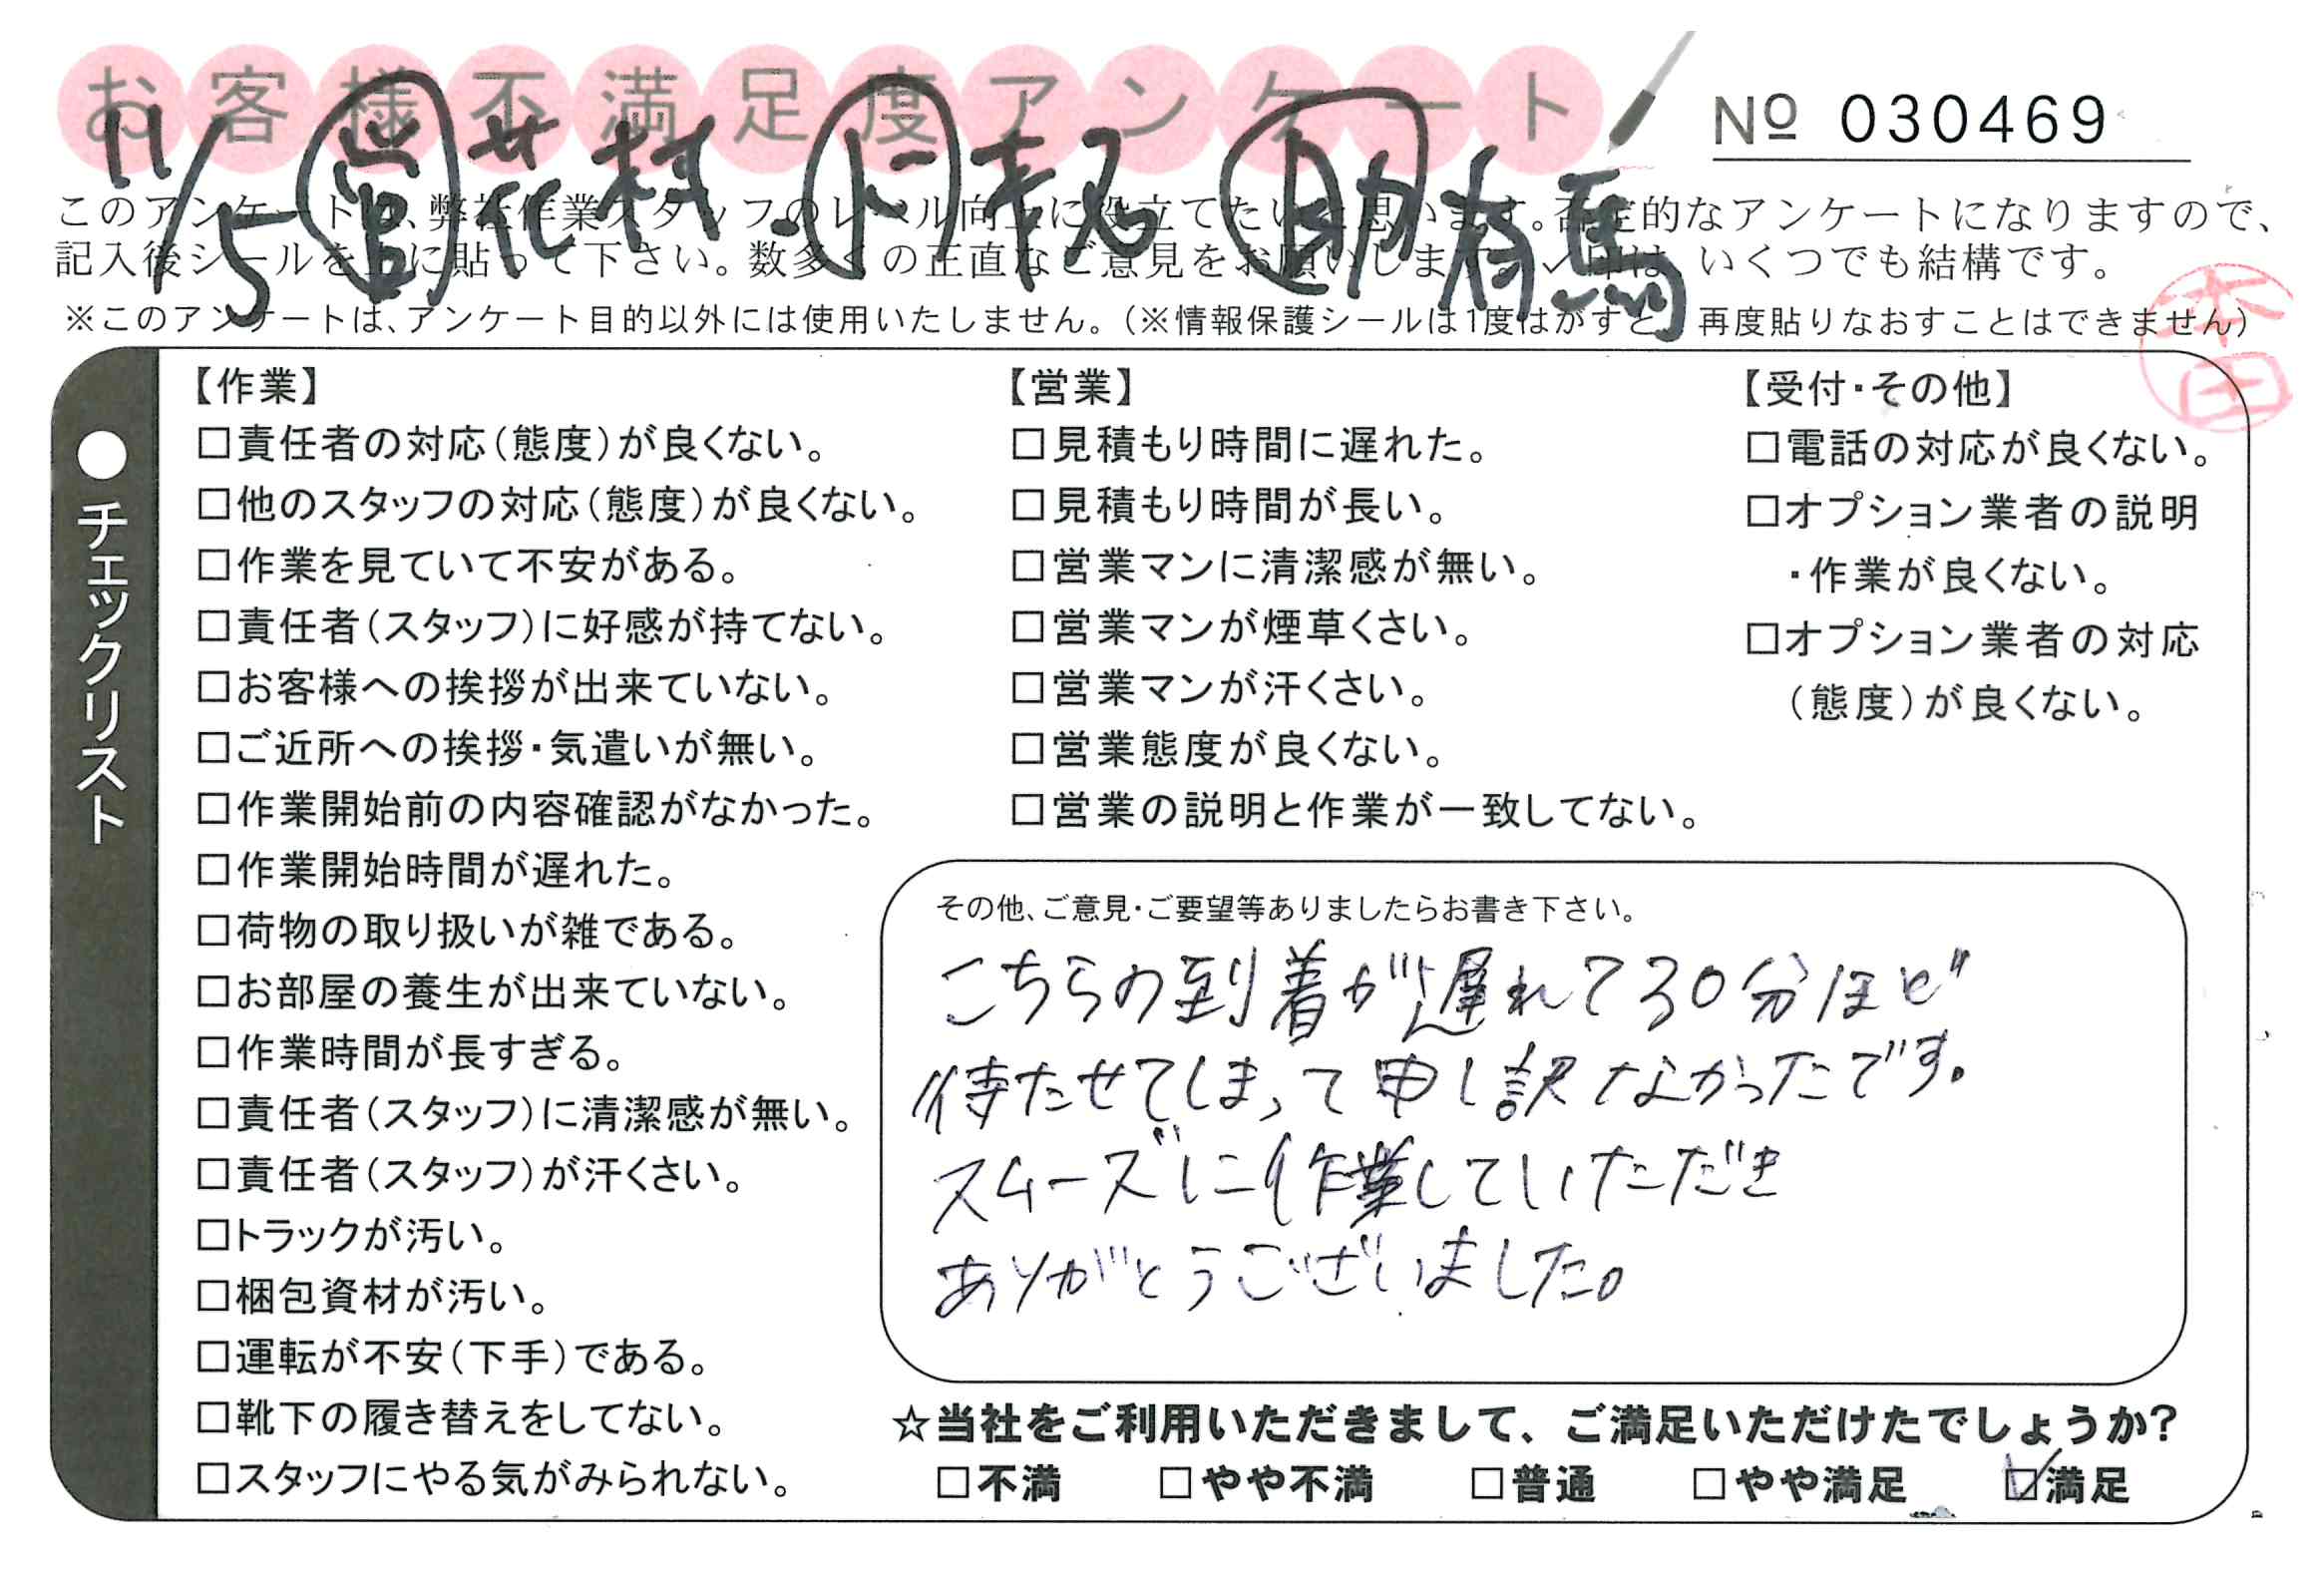 お客様不満足度アンケート
№ 030469
11/5 営 花村 ド 助 有馬
このアンケートは、弊社作業スタッフのレベル向上に役立てたいと思います。否定的なアンケートになりますので、
記入後シールを上に貼って下さい。数多くの正直なご意見をお願いします。✓印は、いくつでも結構です。
※このアンケートは、アンケート目的以外には使用いたしません。(※情報保護シールは1度はがすと、再度貼りなおすことはできません)
本田
●チェックリスト
【作業】
□責任者の対応(態度)が良くない。
□他のスタッフの対応(態度)が良くない。
□作業を見ていて不安がある。
□責任者(スタッフ)に好感が持てない。
□お客様への挨拶が出来ていない。
□ご近所への挨拶・気遣いが無い。
□作業開始前の内容確認がなかった。
□作業開始時間が遅れた。
□荷物の取り扱いが雑である。
□お部屋の養生が出来ていない。
□作業時間が長すぎる。
□責任者(スタッフ)に清潔感が無い。
□責任者(スタッフ)が汗くさい。
□トラックが汚い。
□梱包資材が汚い。
□運転が不安(下手)である。
□靴下の履き替えをしてない。
□スタッフにやる気がみられない。
【営業】
□見積もり時間に遅れた。
□見積もり時間が長い。
□営業マンに清潔感が無い。
□営業マンが煙草くさい。
□営業マンが汗くさい。
□営業態度が良くない。
□営業の説明と作業が一致してない。
【受付・その他】
□電話の対応が良くない。
□オプション業者の説明
・作業が良くない。
□オプション業者の対応
(態度)が良くない。
その他、ご意見・ご要望等ありましたらお書き下さい。
こちらの到着が遅れて30分ほど
待たせてしまって申し訳なかったです。
スムーズに作業していただき
ありがとうございました。
☆当社をご利用いただきまして、ご満足いただけたでしょうか?
□不満 □やや不満 □普通 □やや満足 ☑満足